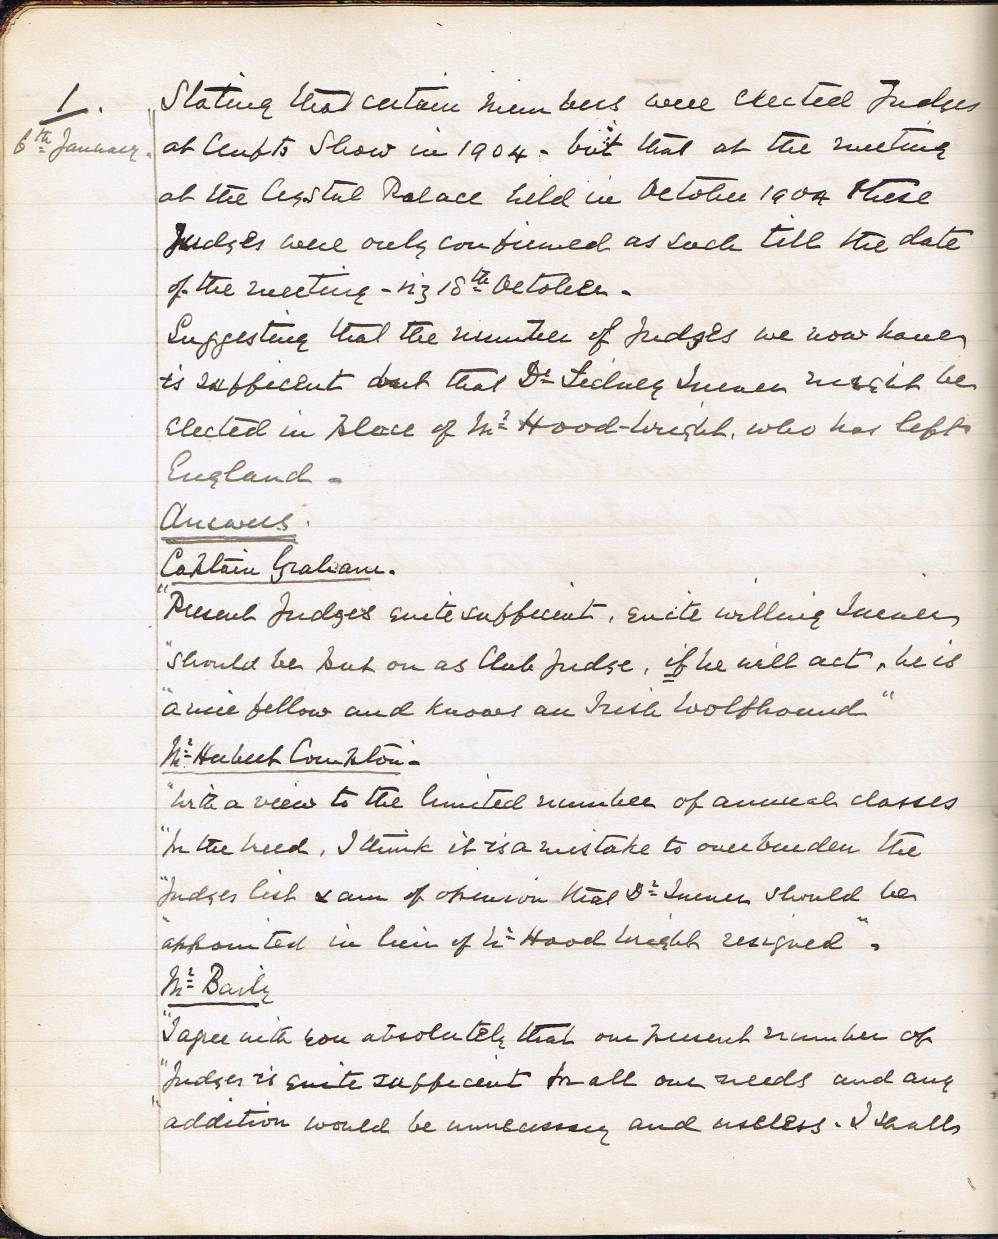 1.
6th January.
Stating that certain members were elected Judges
at Crufts Show in 1904 - but that at the meeting
at the Crystal Palace held in October 1904 these
Judges were only confirmed as such till the date
of the meeting - viz 18th October -
Suggesting that the number of Judges we now have
is sufficient but that Dr Sidney Turner might be
elected in place of Mr Hood-Wright, who has left
England -
Answers.
Captain Graham.
"Present Judges quite sufficient, quite willing Turner
"should be put on as Club Judge, if he will act, he is
"a nice fellow and knows an Irish Wolfhound"
Mr Hubert Compton -
"With a view to the limited number of annual classes
"for the breed, I think it is a mistake to overburden the
"Judges list & am of opinion that Dr Turner should be
"appointed in lieu of Mr Hood Wright resigned".
Mr Baily
"I agree with you absolutely that our present number of
"Judges is quite sufficient for all our needs and any
"addition would be unnecessary and useless. I shall